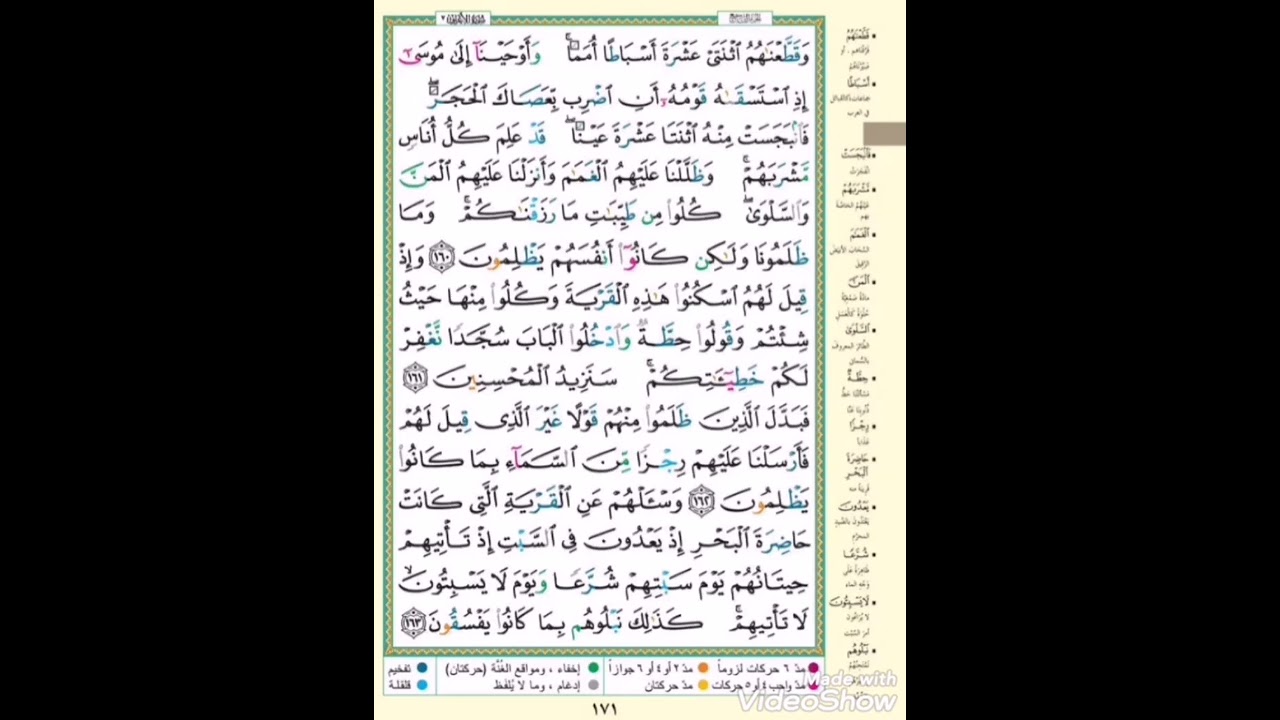 سُورَةُ الأَعۡرَافِ ٧
وَقَطَّعۡنَٰهُمُ ٱثۡنَتَيۡ عَشۡرَةَ أَسۡبَاطًا أُمَمٗاۚ وَأَوۡحَيۡنَآ إِلَىٰ مُوسَىٰٓ
إِذِ ٱسۡتَسۡقَىٰهُ قَوۡمُهُۥٓ أَنِ ٱضۡرِب بِّعَصَاكَ ٱلۡحَجَرَۖ
فَٱنۢبَجَسَتۡ مِنۡهُ ٱثۡنَتَا عَشۡرَةَ عَيۡنٗاۖ قَدۡ عَلِمَ كُلُّ أُنَاسٖ
مَّشۡرَبَهُمۡۚ وَظَلَّلۡنَا عَلَيۡهِمُ ٱلۡغَمَٰمَ وَأَنزَلۡنَا عَلَيۡهِمُ ٱلۡمَنَّ
وَٱلسَّلۡوَىٰۖ كُلُواْ مِن طَيِّبَٰتِ مَا رَزَقۡنَٰكُمۡۚ وَمَا
ظَلَمُونَا وَلَٰكِن كَانُوٓاْ أَنفُسَهُمۡ يَظۡلِمُونَ ١٦٠ وَإِذۡ
قِيلَ لَهُمُ ٱسۡكُنُواْ هَٰذِهِ ٱلۡقَرۡيَةَ وَكُلُواْ مِنۡهَا حَيۡثُ
شِئۡتُمۡ وَقُولُواْ حِطَّةٞ وَٱدۡخُلُواْ ٱلۡبَابَ سُجَّدٗا نَّغۡفِرۡ
لَكُمۡ خَطِيٓـَٰٔتِكُمۡۚ سَنَزِيدُ ٱلۡمُحۡسِنِينَ ١٦١
فَبَدَّلَ ٱلَّذِينَ ظَلَمُواْ مِنۡهُمۡ قَوۡلًا غَيۡرَ ٱلَّذِي قِيلَ لَهُمۡ
فَأَرۡسَلۡنَا عَلَيۡهِمۡ رِجۡزٗا مِّنَ ٱلسَّمَآءِ بِمَا كَانُواْ
يَظۡلِمُونَ ١٦٢ وَسۡـَٔلۡهُمۡ عَنِ ٱلۡقَرۡيَةِ ٱلَّتِي كَانَتۡ
حَاضِرَةَ ٱلۡبَحۡرِ إِذۡ يَعۡدُونَ فِي ٱلسَّبۡتِ إِذۡ تَأۡتِيهِمۡ
حِيتَانُهُمۡ يَوۡمَ سَبۡتِهِمۡ شُرَّعٗا وَيَوۡمَ لَا يَسۡبِتُونَ
لَا تَأۡتِيهِمۡۚ كَذَٰلِكَ نَبۡلُوهُم بِمَا كَانُواْ يَفۡسُقُونَ ١٦٣
قَطَّعْنَاهُمْ
أَسْبَاطًا
في العرب
فَانْبَجَسَتْ
انْفَجَرَتْ
مَشْرَبَهُمْ
الْغَمَامَ
السَّحَابَ الأبيض
الرقيق
الْمَنَّ
مادّة صمغيّة
حلوة كالعسل
السَّلْوَى
الطائر المعروف
بالسُّمانى
حِطَّةٌ
رِجْزًا
عذابًا
حَاضِرَةَ
الْبَحْرِ
قريبة منه
يَعْدُونَ
يعتدون بالصيد
المحرّم
شُرَّعًا
ظاهرة على
وجه الماء
لَا يَسْبِتُونَ
لا يراعون
أمر السبت
نَبْلُوهُمْ
مدّ ٦ حركات لزوماً
مدّ ٢ أو ٤ أو ٦ جوازاً
إخفاء ، ومواقع الغُنَّة (حركتان)
تفخيم
مدّ واجب ٤ أو ٥ حركات
مدّ حركتان
إدغام ، وما لا يُلفَظ
قلقلة
١٧١
Made with
VideoShow